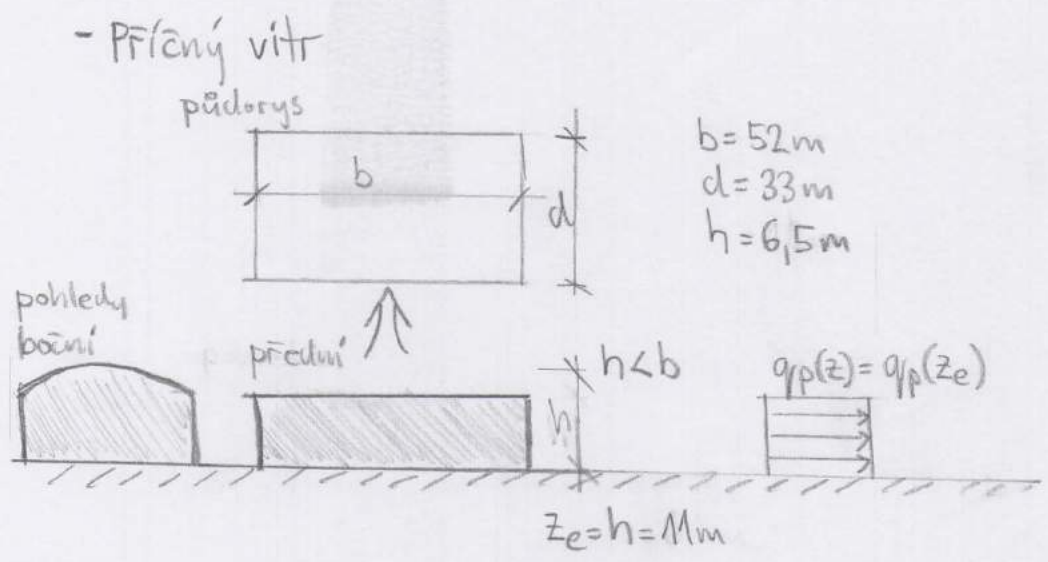 - Příčný vítr
půdorys
b
d
b = 52m
d = 33m
h = 6,5m
pohledy
boční
přední
h < b
h
qp(z) = qp(ze)
ze = h = 11m